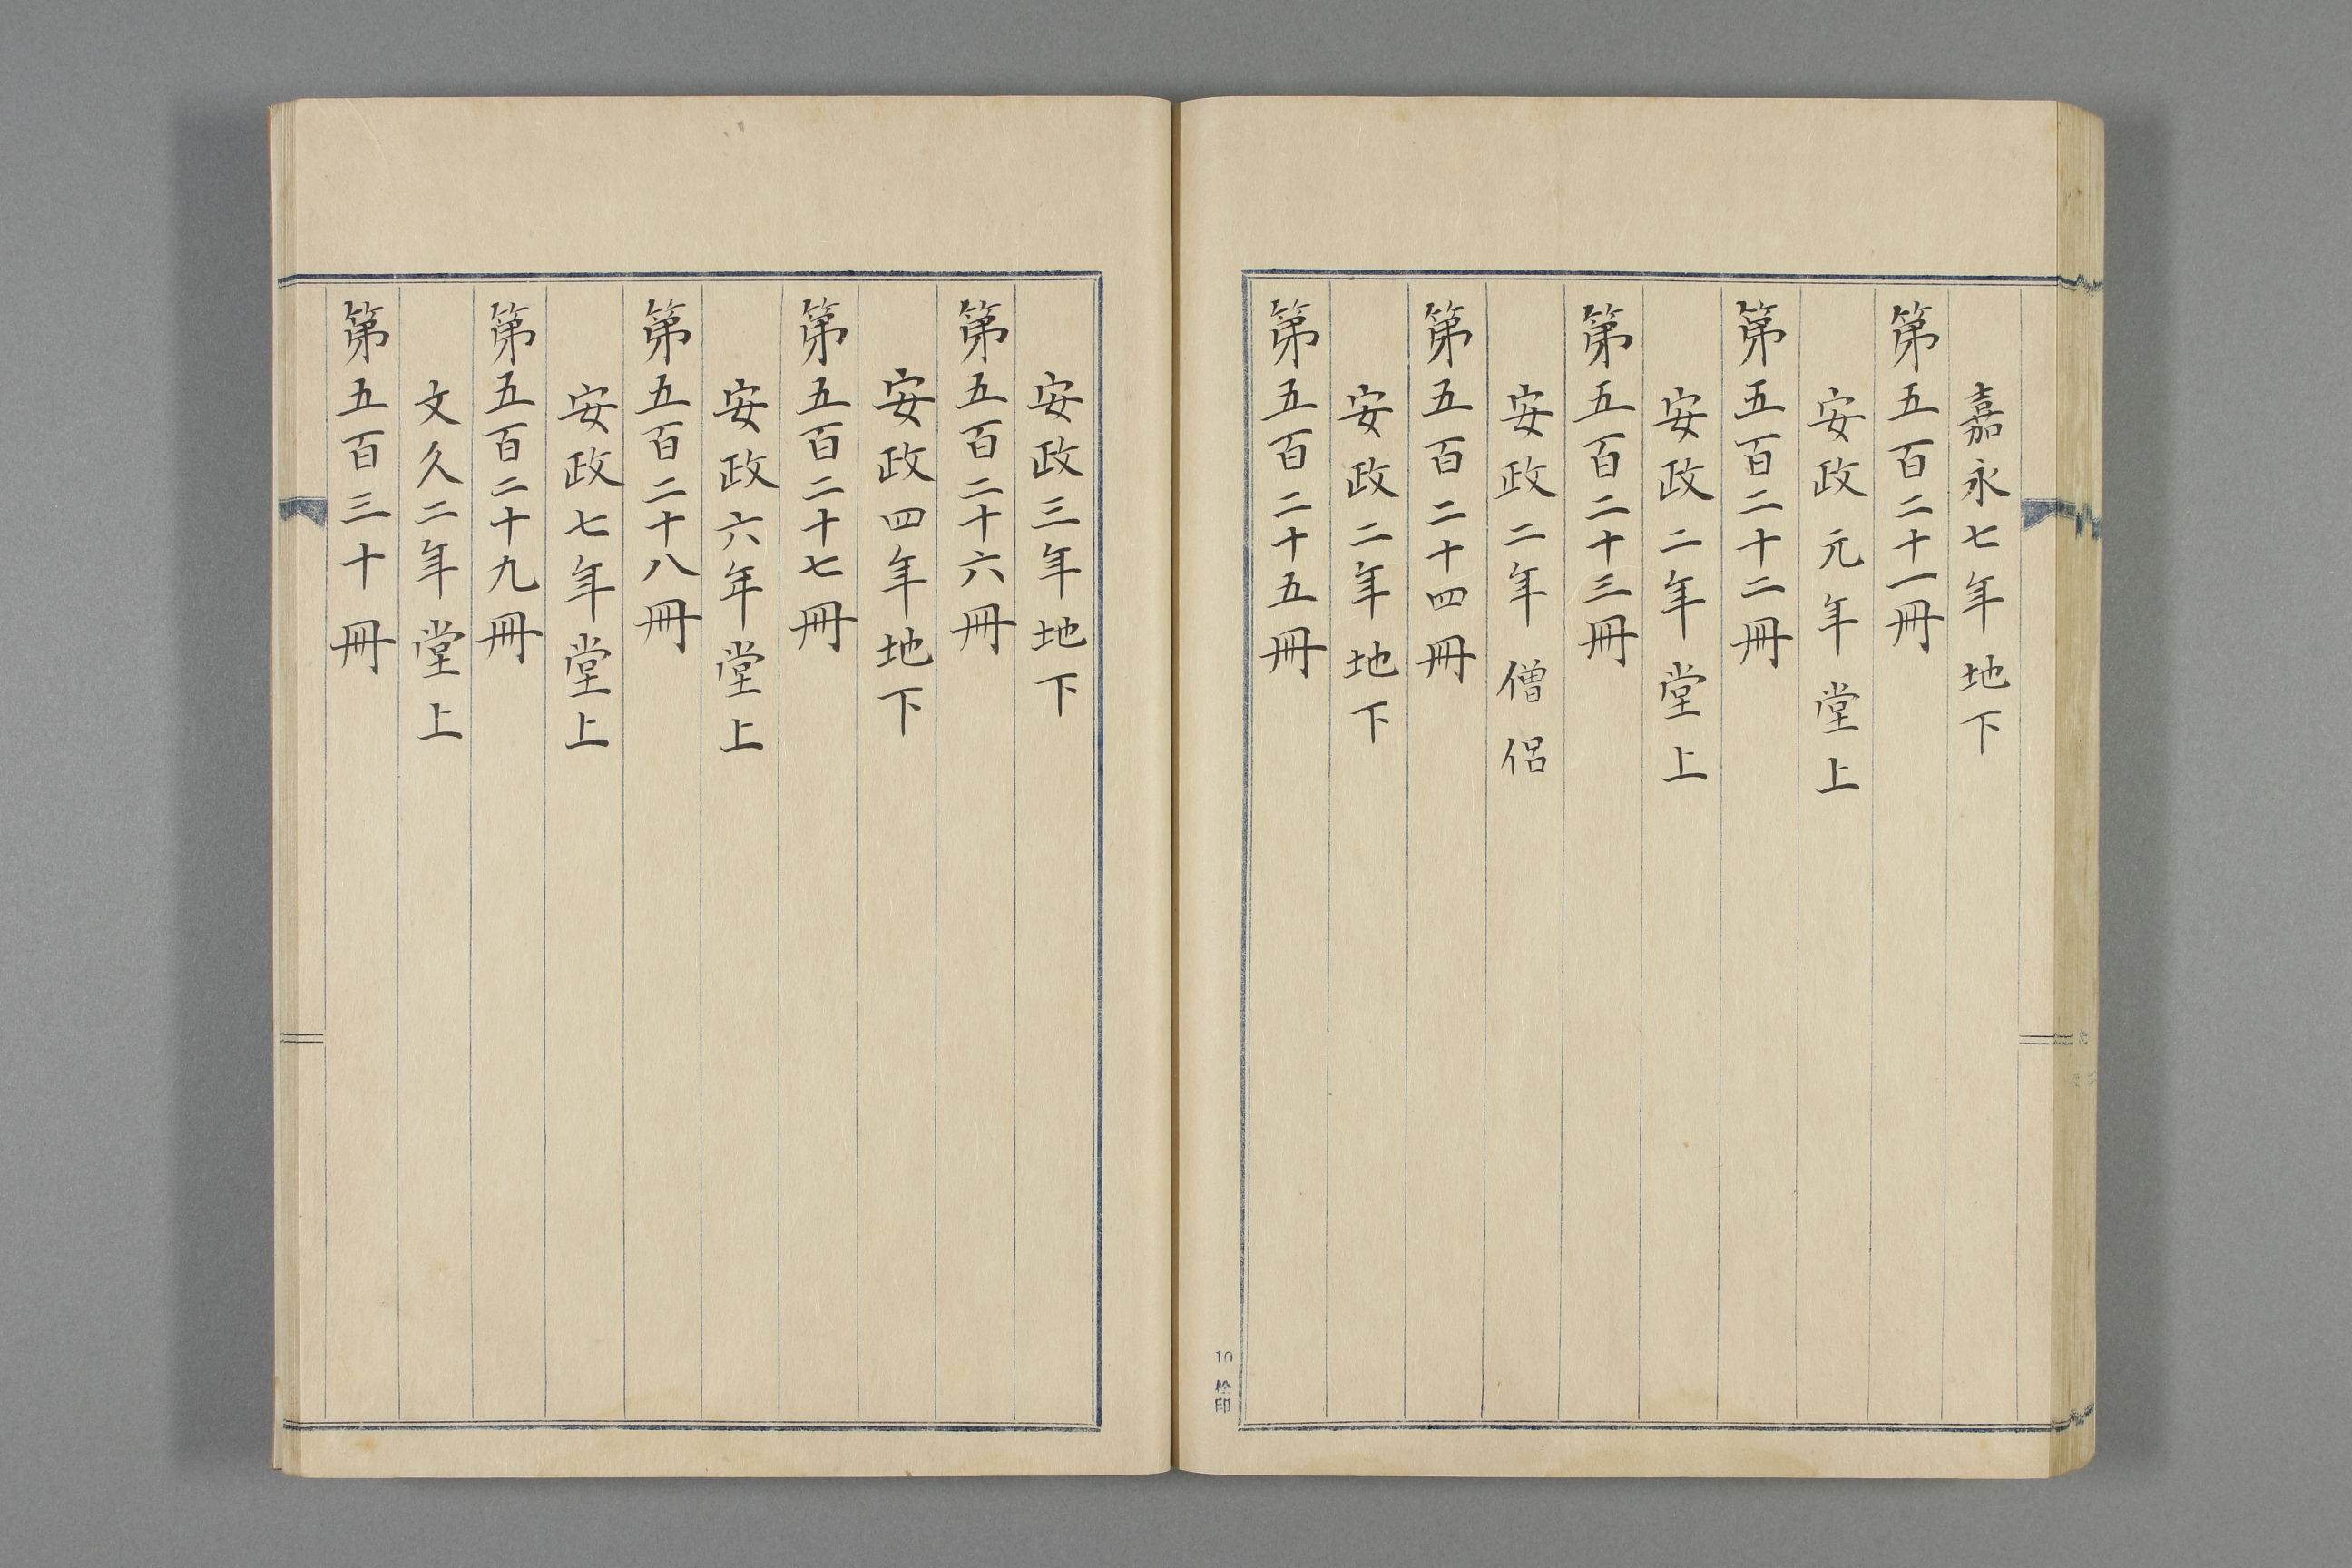 嘉永七年地下
第五百二十一冊
安政元年堂上
第五百二十二冊
安政二年堂上
第五百二十三冊
安政二年僧侶
第五百二十四冊
安政二年地下
第五百二十五冊
10 松印
安政三年地下
第五百二十六冊
安政四年地下
第五百二十七冊
安政六年堂上
第五百二十八冊
安政七年堂上
第五百二十九冊
文久二年堂上
第五百三十冊